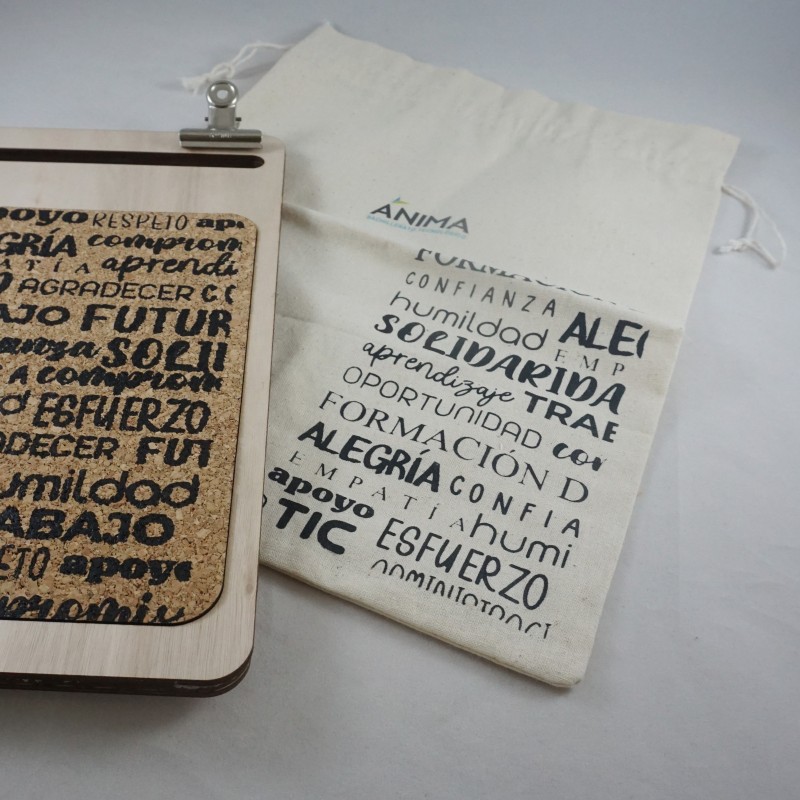 poyo RESPETO apo
GRÍA comprom
ATÍA aprendi
AGRADECER CO
AJO FUTUR
anza SOLI
A comprom
d ESFUERZO
ADECER FUT
umildad
ABAJO
ETO apoyo
promis
ÁNIMA
FORMACIÓN
CONFIANZA
humildad ALEG
SOLIDARIDA
EMP
aprendizaje
OPORTUNIDAD TRAB
FORMACIÓN D con
ALEGRÍA CONFIA
EMPATÍA humi
apoyo
TIC ESFUERZO
ADMINISTRACI